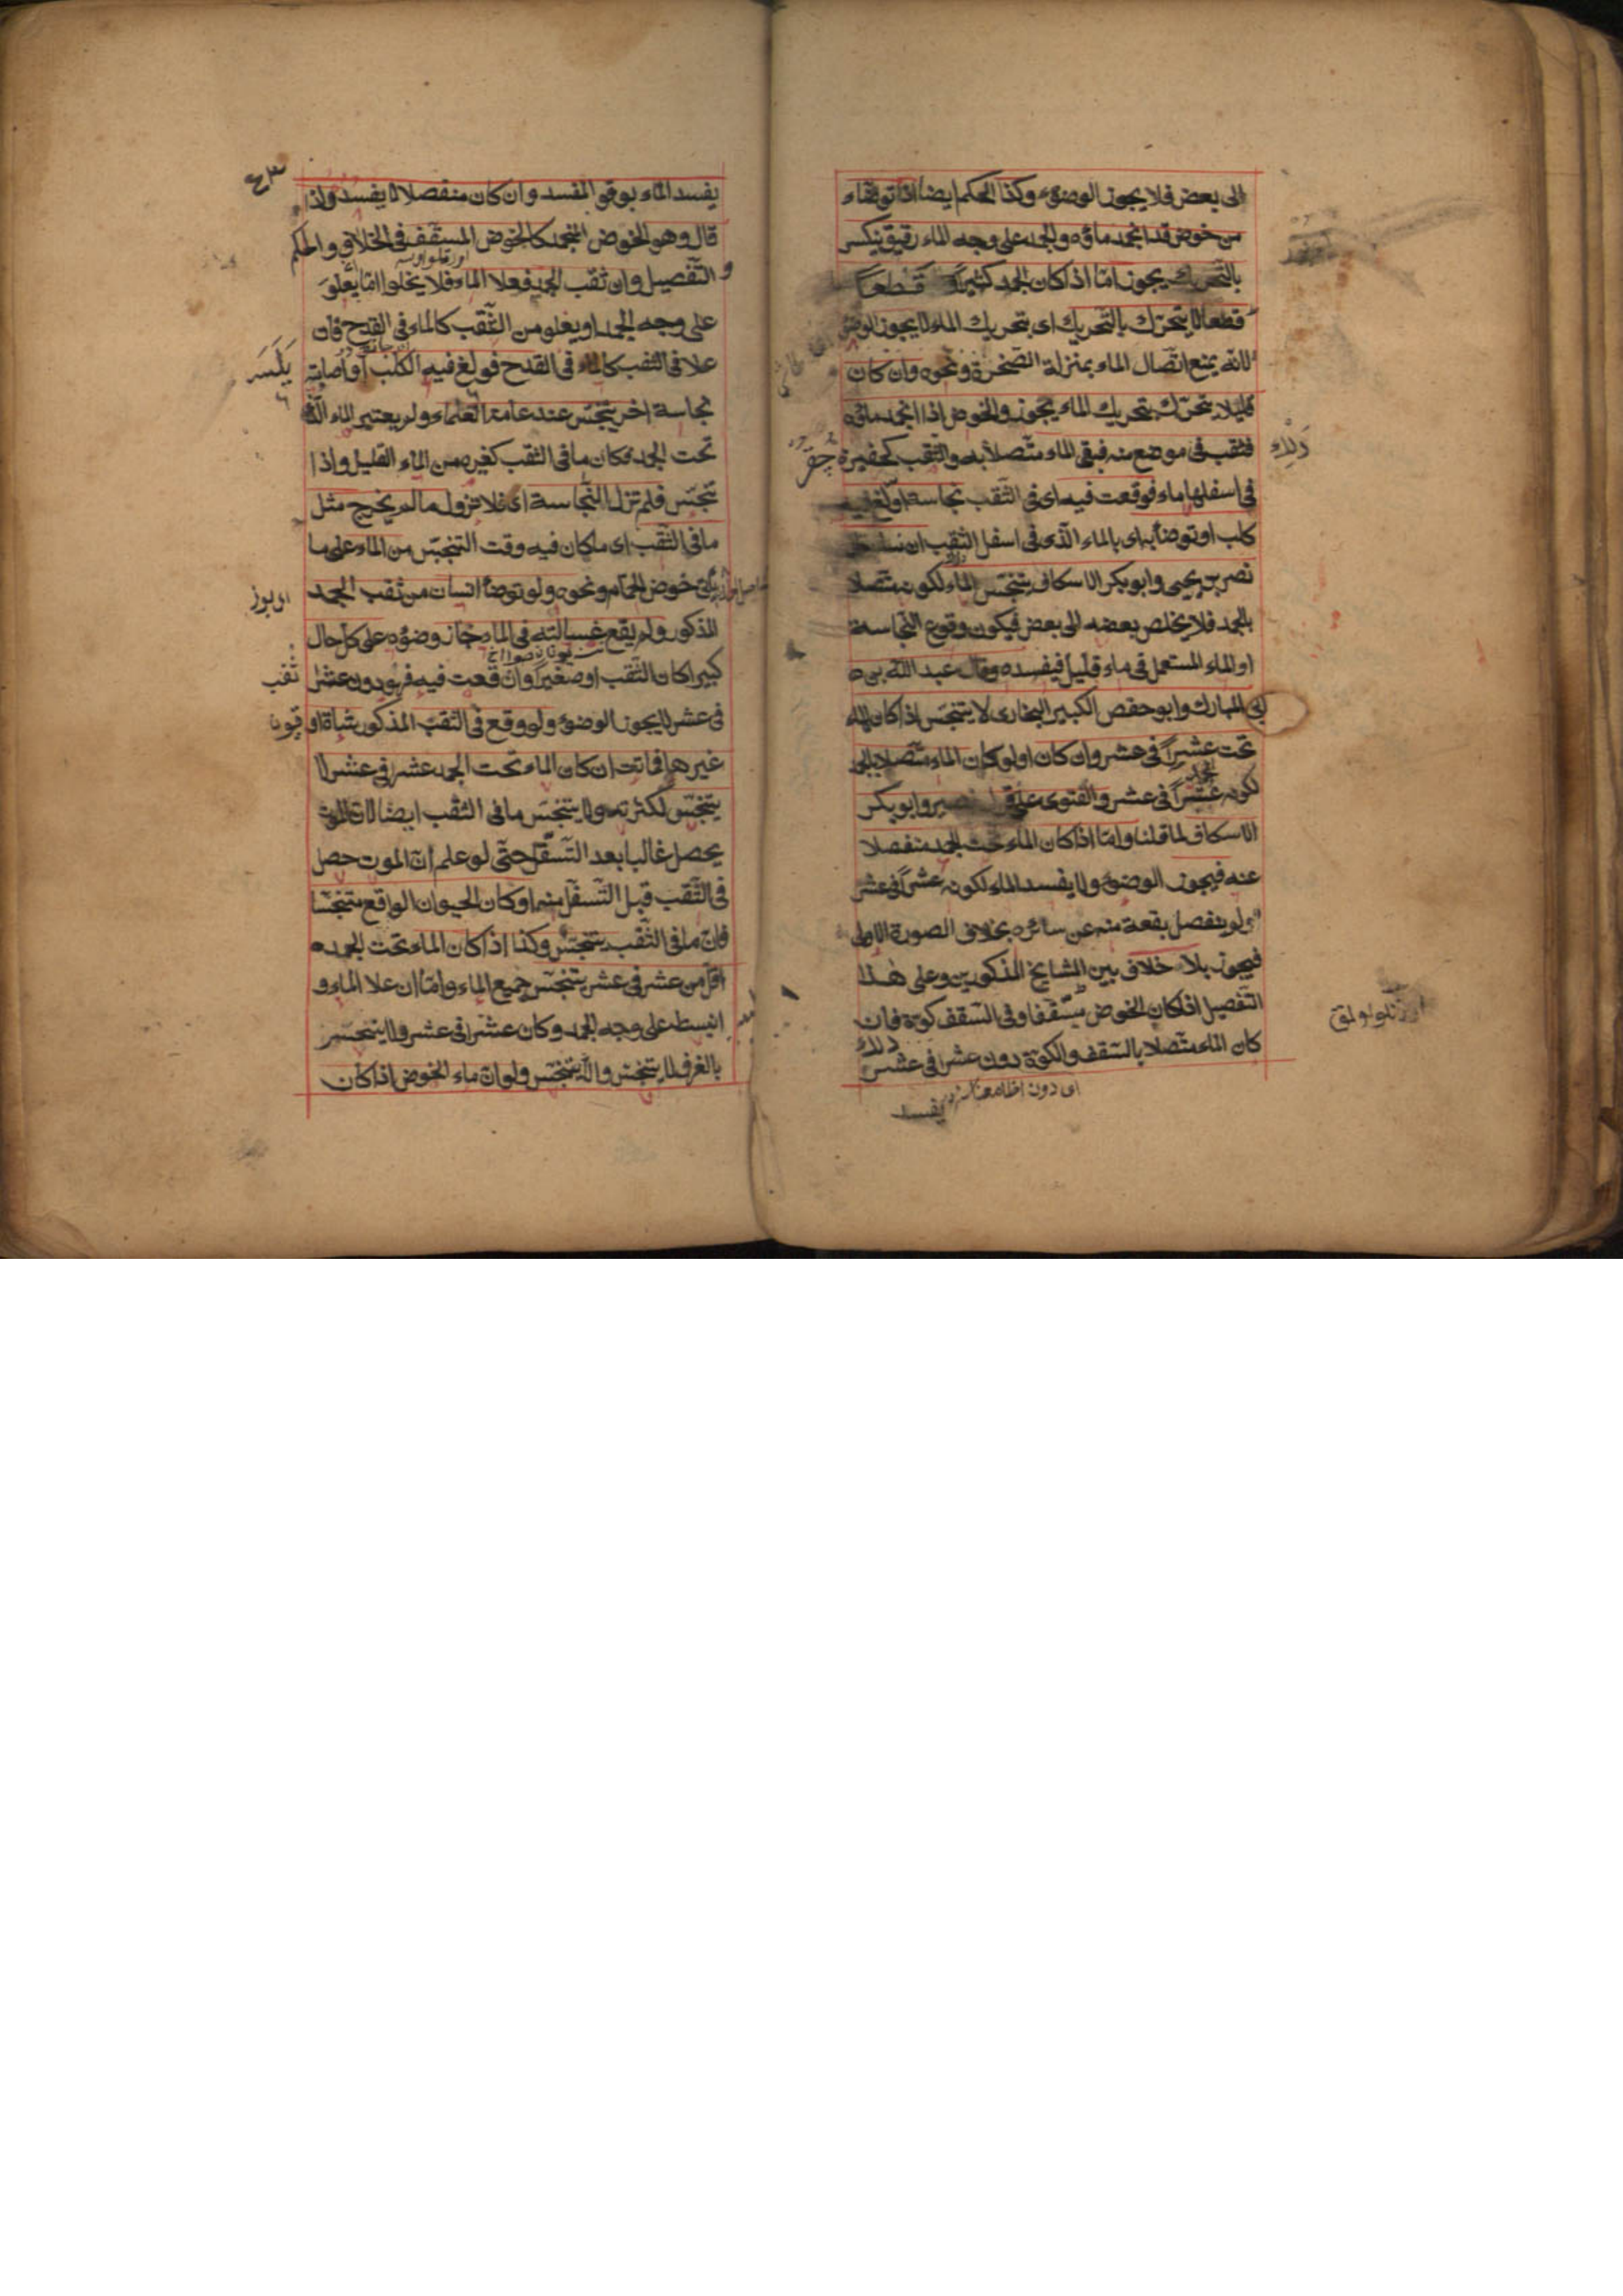 الى بعض فلا يجوز الوضوء وكذا الحكم ايضا اذا توضاء
من خوض قد انجمد ماؤه والجمد على وجه الماء رقيق ينكسر
بالتحريك يجوز امّا اذا كان الجمد كثيرًا قطعًا
قطعا لا يتحرّك بالتحريك اى بتحريك الماء لا يجوز الوضو
لانّه يمنع اتّصال الماء بمنزلة الصّخرة ونحوه وان كان
قليلا يتحرّك بتحريك الماء يجوز والخوض اذا انجمد ماؤه
فثقب فى موضع منه فبقى الماء متّصلا به والثقب كحفيرة
فى اسفلها ماء فوقعت فيه اى فى الثّقب نجاسة اولغ فيه
كلب او توضأ به اى بالماء الّذى فى اسفل الثقب ان
نصر بن يحيى وابو بكر الاسكاف يتنجّس الماء لكونه متّصلا
بالجمد فلا يخلص بعضه الى بعض فيكون وقوع النّجاسة
او الماء المستعمل فى ماء قليل فيفسده وقال عبد الله بن
المبارك وابو حفص الكبير البخارى لا يتنجّس اذا كان الماء
تحت عشرًا فى عشر وان كان اولو كان الماء متّصلا بالـ
لكونه عشرًا فى عشر والفتوى على نصير وابو بكر
الاسكاف لما قلنا وامّا اذا كان الماء تحت الجمد منفصلا
عنه فيجوز الوضوء ولا يفسد الماء لكونه عشرًا فى عشر
ولو ينفصل بقعة منه عن سائره بخلاف الصورة الاولى
فيجوز بلا خلاف بين المشايخ المذكورين وعلى هٰذا
التّفصيل اذا كان الخوض مسّقّفا وفى السّقف كوّة فان
كان الماء متّصلا بالسّقف والكوّة دون عشر فى عشر
يفسد
ذلك
يفسد الماء بوقوع المفسد وان كان منفصلا لا يفسد ولذا
قال وهو الخوض المنجمد كالخوض المسقّف فى الخلاف والحكم
والتّفصيل وان ثقب الجمد فعلا الماء فلا يخلوا امّا يعلو
على وجه الجمد او يعلو من الثّقب كالماء فى القدح فان
علا فى الثقب كالماء فى القدح فولغ فيه الكلب او اصابته
نجاسة اخر يتنجّس عند عامّة العلماء ولم يعتبر الماء الّذى
تحت الجمد فكان ما فى الثقب كغيره من الماء القليل واذا
تنجّس فلم تزل النّجاسة اى فلا تزول ما لم يخرج مثل
ما فى الثّقب اى ما كان فيه وقت التنجّس من الماء على ما
خوض الحمّام ونحوه ولو توضأ انسان من ثقب الجمد
المذكور ولم يقع غسالته فى الماء جاز وضوؤه على كلّ حال
كبيرا كان الثّقب او صغيرًا وان وقعت فيه فهو دون عشر
فى عشر لا يجوز الوضوء ولو وقع فى الثقب المذكور شاة او
غيرها فماتت ان كان الماء تحت الجمد عشر فى عشر لا
يتنجّس لكثرته ولا يتنجّس ما فى الثقب ايضا لان الموت
يحصل غالبا بعد التّسفّل حتّى لو علم انّ الموت حصل
فى الثّقب قبل التّسفّل منه او كان الحيوان الواقع متنجّسا
فان ما فى الثّقب يتنجّس وكذا اذا كان الماء تحت الجمد
اقلّ من عشر فى عشر يتنجّس جميع الماء وامّا ان علا الماء و
انبسط على وجه الجمد وكان عشرا فى عشر ولا ينحسر
بالغرف لا يتنجّس والّا يتنجّس ولو انّ ماء الخوض اذا كان
ثقب